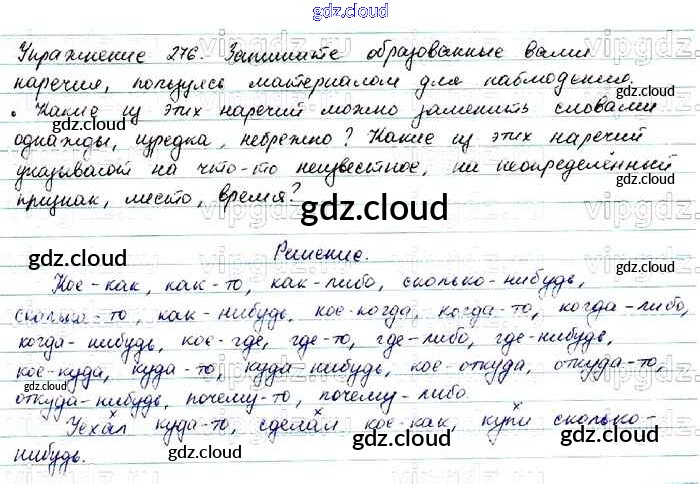 gdz.cloud
Упражнение 276. Запишите образованные вами
наречия, пользуясь материалом для наблюдения.
. Какие из этих наречий можно заменить словами
однажды, изредка, небрежно? Какие из этих наречий
указывают на что-то неизвестное, на неопределённый
признак, место, время?
gdz.cloud
Решение.
Кое-как, как-то, как-либо, сколько-нибудь,
сколько-то, как-нибудь, кое-когда, когда-то, когда-либо,
когда-нибудь, кое-где, где-то, где-либо, где-нибудь,
кое-куда, куда-то, куда нибудь, кое-откуда, откуда-то,
откуда-нибудь, почему-то, почему-либо.
Уехал куда-то, сделал кое-как, купи сколько-
нибудь.
gdz.cloud